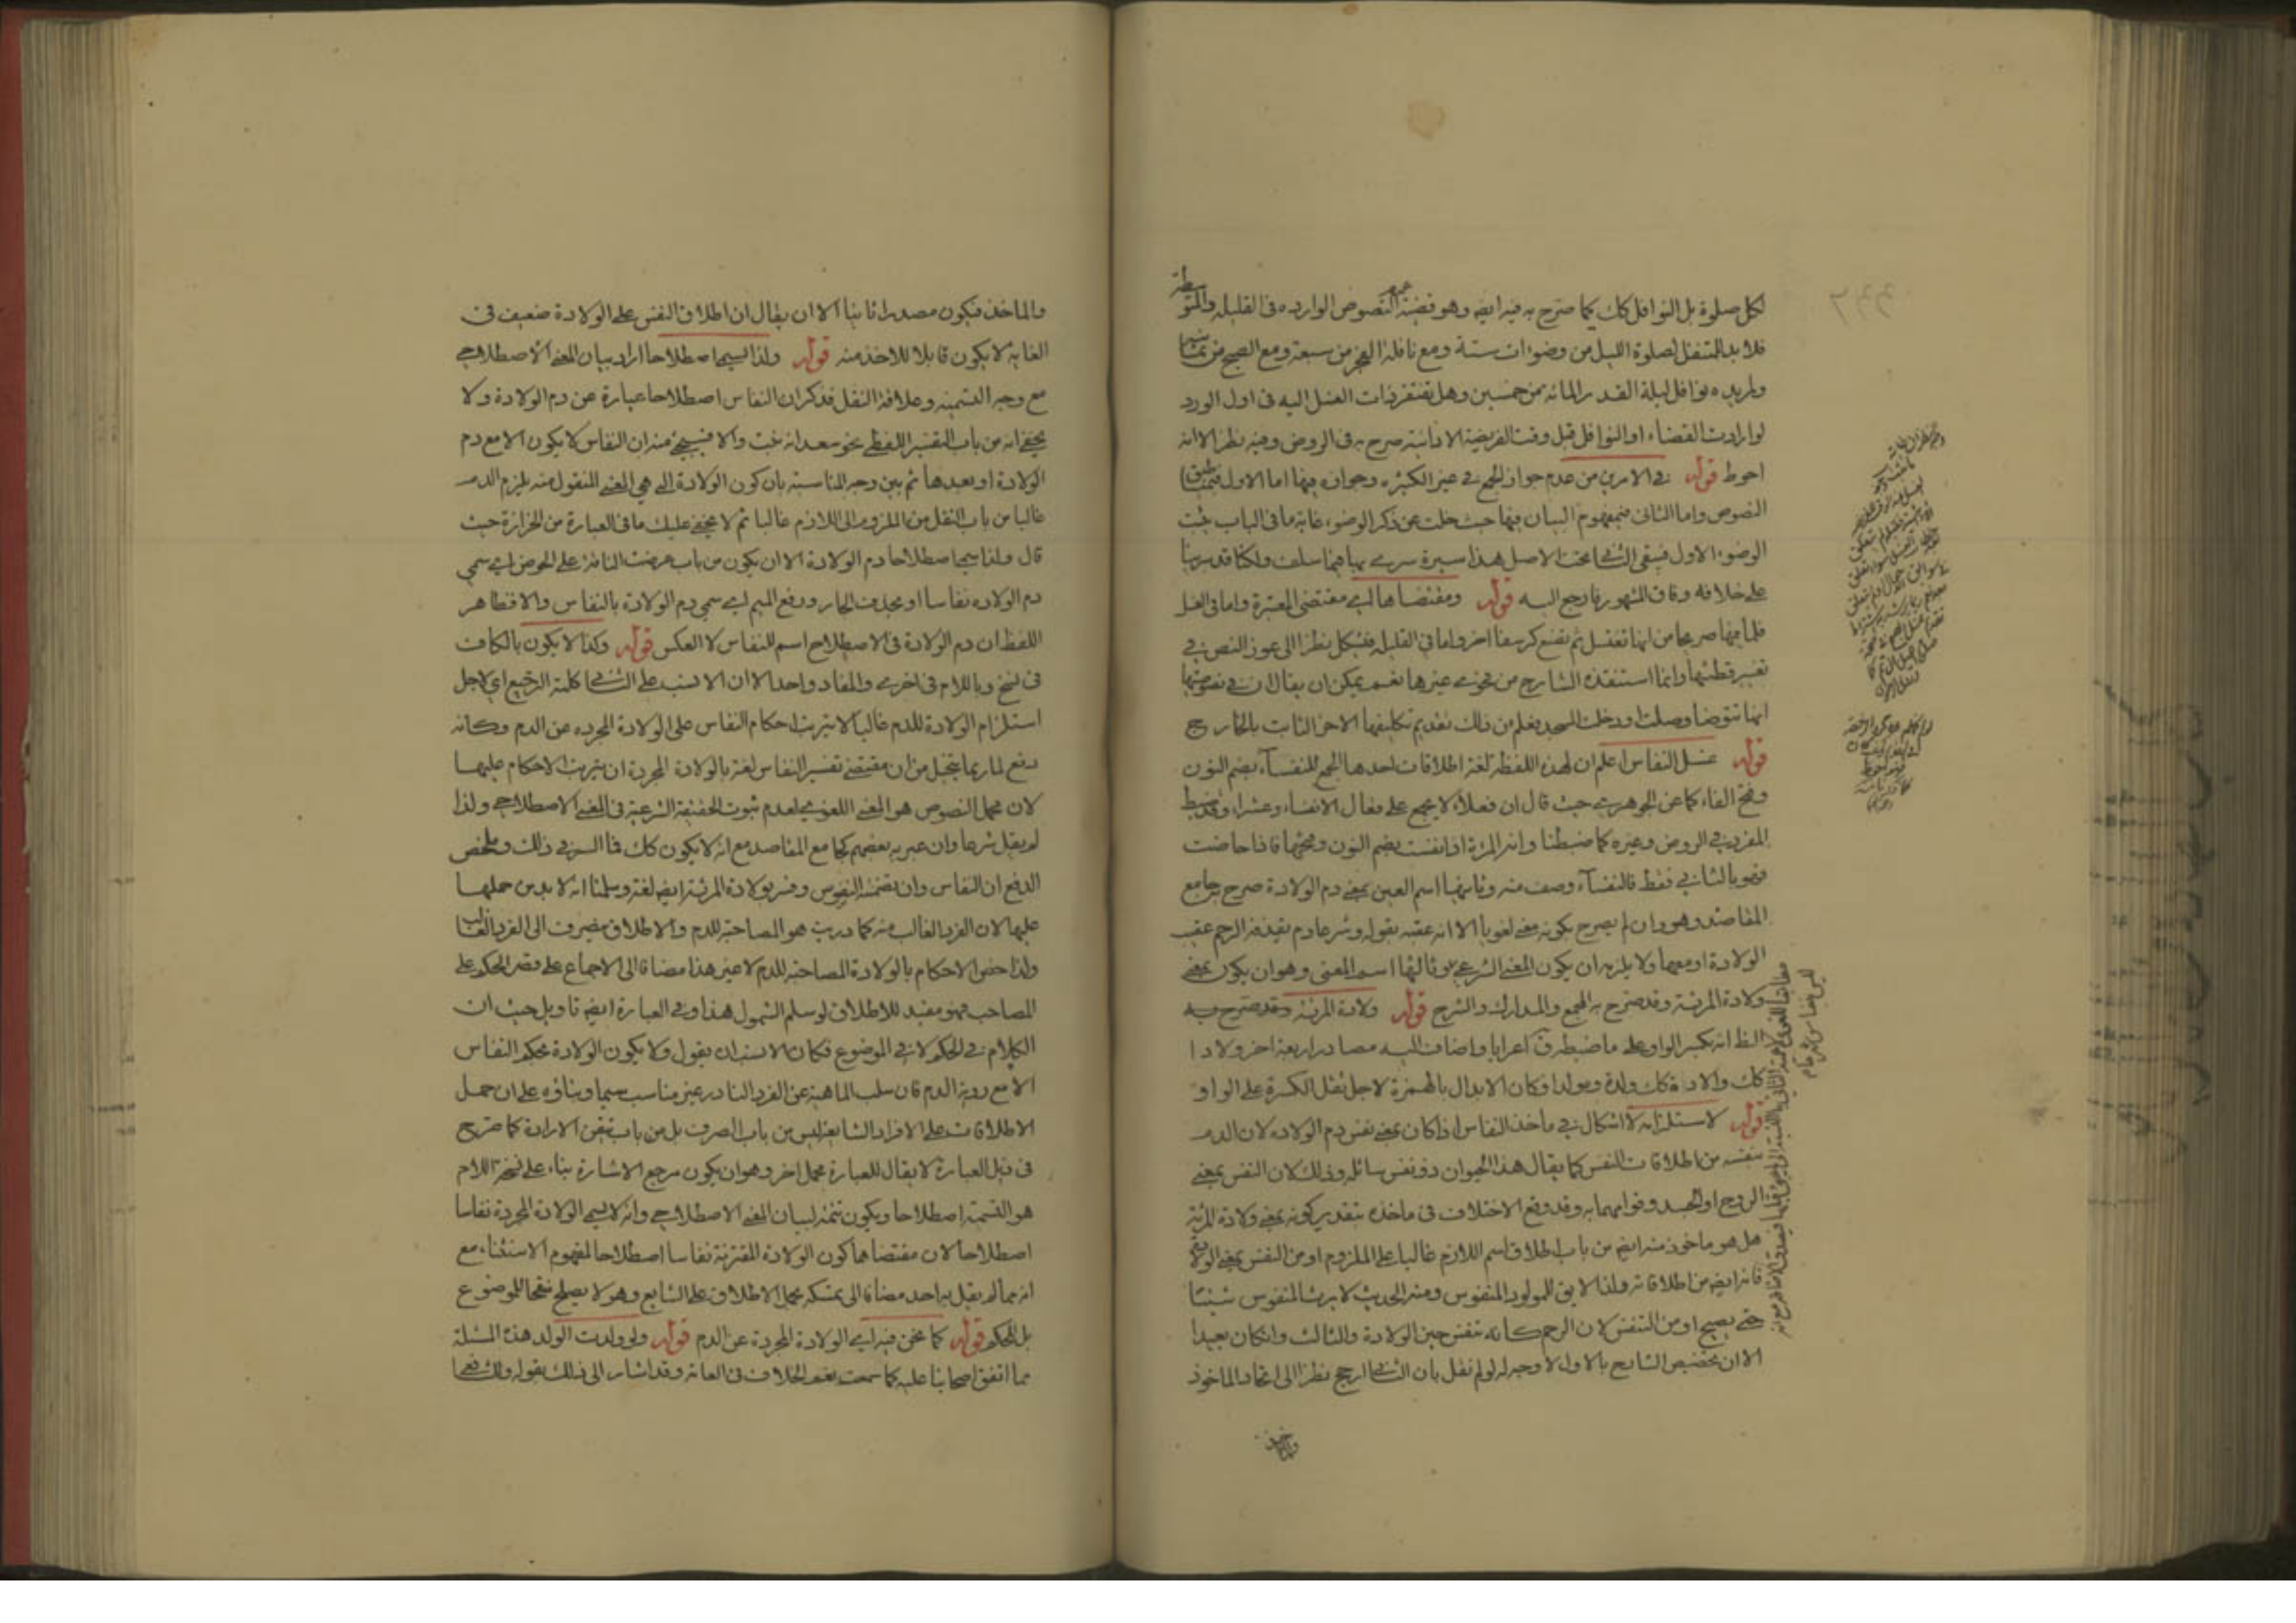 لكل صلوة بل النوافل كك كما صرح به فيه ايضه وهو قضية عموم النصوص الوارده فى القليله والمتوسطة
فلا بد للمتنفل لصلوة الليل من وضوءات ستة ومع نافلة الفجر من سبعة ومع الصبح من ثمانية
ولمريده نوافل ليلة القدر المائه من خمسين وهل تفتقر ذات الغسل اليه فى اول الورد
لو ارادت القضاء او النوافل قبل وقت الفريضة الاداية صرح به فى الروض وفيه نظر الا انه
احوط قوله فى الامرين من عدم جواز الجمع فى غير الكثيره وجوازه فيها اما الاول
النصوص واما الثانى فبمفهوم البيان فيها حيث خلت عن ذكر الوضوء غاية ما فى الباب يثبت
الوضوء الاول فبقى الثانى تحت الاصل هذا سيرة سرى بها هنا سلف ولكنا قد سرينا
على خلافه وفاق المشهور فارجع اليه قوله ومقتضاها اى مقتضى المعتبرة واما فى الغسل
فلما فيها صريحا من انها تغتسل ثم تضع كرسفا اخر واما فى القليله فيشكل نظرا الى عوز النص فى
تغيير قطنتها وانما استنقذه الشارح من نحوى غيرها نعم يمكن ان يقال ان فى نصوصها
انها تتوضا وصلت او دخلت المسجد يعلم من ذلك تقديم تكليفها الاخر الثابت بالخارج
قوله غسل النفاس اعلم ان لهذه اللفظة لغة اطلاقات احدها الجمع للنفساء بضم النون
وفتح الفاء كما عن الجوهرى حيث قال ان فعلاء لا يجمع على فعال الا نفساء وعشراء وقد ضبط
المفرد فى الروض وغيره كما ضبطنا وانه المرئة اذا نفست بضم النون وفتحها فاذا حاضت
فهو بالثانى فقط فالنفساء وصف منه وثانيها اسم العين بمعنى دم الولادة صرح به جامع
المقاصد وهو وان لم يصرح بكونه معنى لغويا الا انه عقبه بقوله وشرعا دم يقذفه الرحم عقيب
الولادة او معها ولا يلزم ان يكون المعنى الشرعى وثالثها اسم المعنى وهو ان يكون بمعنى
ولادة المرئة وقد صرح به المجمع والمدارك والشرح قوله ولادة المرئة وقد صرح به
الظ انه بكسر الواو على ما ضبطه ق اعرابا واضاف اليه مصادر اربعة اخر ولادا
كك والادة كك ولدة ومولدا وكان الابدال بالهمزة لاجل ثقل الكسرة على الواو
قوله لاستلزامه لا اشكال فى ماخذ النفاس اذا كان بمعنى نفس دم الولاده لان الدم
بنفسه من اطلاقات النفس كما يقال هذا الحيوان ذو نفس سائله وذلك لان النفس بمعنى
الروح او الجسد وقوامهما به وقد وقع الاختلاف فى ماخذه بتقدير كونه بمعنى ولادة المرئة
هل هو ماخوذ منه ايضه من باب اطلاق اسم اللازم غالبا على الملزوم او من النفس بمعنى الولد
فانه ايضه من اطلاقاته ولذا لا يق للمولود المنفوس ومنه الحديث لا يرث المنفوس شيئا
حتى يصيح او من التنفس لان الرحم كانه تنفس حين الولادة والثالث وان كان بعيدا
الا ان تخصيص الشارح بالاول لا وجه له لو لم نقل بان الثانى ارجح نظرا الى اتحاد الماخوذ
والماخذ
والماخذ فيكون مصدرا ثانيا الا ان يقال ان اطلاق النفس على الولادة ضعيف فى
الغاية لا يكون قابلا للاخذ منه قوله ولذا سمى اصطلاحا اراد بيان المعنى الاصطلاحى
مع وجه التسمية وعلاقة النقل فذكر ان النفاس اصطلاحا عبارة عن دم الولادة ولا
يخفى انه من باب التفسير اللفظى نحو سعدانه نبت والا فسيجئ منه ان النفاس لا يكون الا مع دم
الولادة او بعدها ثم بين وجه المناسبة بان كون الولادة التى هى المعنى المنقول منه يلزم الدم
غالبا من باب النقل من الملزوم الى اللازم غالبا ثم لا يخفى عليك ما فى العبارة من الحزازة حيث
قال ولذا سمى اصطلاحا دم الولادة الا ان يكون من باب عرضت الناقة على الحوض اى سمى
دم الولاده نفاسا او بحذف الجار ورفع الميم اى سمى دم الولادة بالنفاس والا فظاهر
اللفظ ان دم الولادة فى الاصطلاح اسم للنفاس لا العكس قوله وكذا لا يكون بالكاف
فى نسخ وباللام فى اخرى والمفاد واحد الا ان الانسب على الثانى كلمة الترجيع اى لاجل
استلزام الولادة للدم غالبا لا يترتب احكام النفاس على الولادة المجرده عن الدم وكانه
دفع لما ربما يتخيل من ان مقتضى تفسير النفاس لغة بالولادة المجردة ان يترتب الاحكام عليها
لان محمل النصوص هو المعنى اللغوى لعدم ثبوت الحقيقة الشرعية فى المعنى الاصطلاحى ولذا
لم يقل شرعا وان عبر به بعضهم كجامع المقاصد مع انه لا يكون كك فما السر فى ذلك وملخص
الدفع ان النفاس وان تضمنه النصوص وفسر بولادة المرئة ايضه لغة وسلمنا انه لا بد من حملها
عليها لان الفرد الغالب منه كما دريت هو المصاحبة للدم والاطلاق ينصرف الى الفرد الغالب
ولذا خص الاحكام بالولادة المصاحبة للدم لا غير هذا مضافا الى الاجماع على قصر الحكم على
المصاحب فهو مقيد للاطلاق لو سلم الشمول هذا وفى العبارة ايضه تاويل حيث ان
الكلام فى الحكم لا فى الموضوع فكان الانسب ان يقول ولا يكون الولادة بحكم النفاس
الا مع روية الدم فان سلب الماهية عن الفرد النادر غير مناسب سيما وبناؤه على ان حمل
الاطلاقات على الافراد الشايعة ليس من باب الصرف بل من باب تيقن الارادة كما صرح
فى ذيل العبارة لا يقال للعبارة محمل اخر وهو ان يكون مرجع الاشارة بناء على نسخة اللام
هو التسمية اصطلاحا ويكون تتمة لبيان المعنى الاصطلاحى وانه لا يسمى الولادة المجردة نفاسا
اصطلاحا لان مقتضاها كون الولادة المقترنة نفاسا اصطلاحا لمفهوم الاستثناء مع
انه مما لم يقل به احد مضافا الى تمسكه بحمل الاطلاق على الشايع وهو لا يصلح منقحا للموضوع
بل للحكم قوله كما نحن فيه اى الولادة المجردة عن الدم قوله ولو ولدت الولد هذه المسئلة
مما اتفق اصحابنا عليه كما سمعت نعم الخلاف فى العامة وقد اشار الى ذلك بقوله